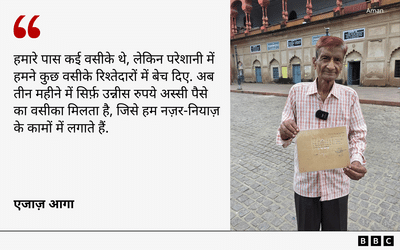 Aman
हमारे पास कई वसीके थे, लेकिन परेशानी में
हमने कुछ वसीके रिश्तेदारों में बेच दिए. अब
तीन महीने में सिर्फ़ उन्नीस रुपये अस्सी पैसे
का वसीका मिलता है, जिसे हम नज़र-नियाज़
के कामों में लगाते हैं.
एजाज़ आगा
BBC